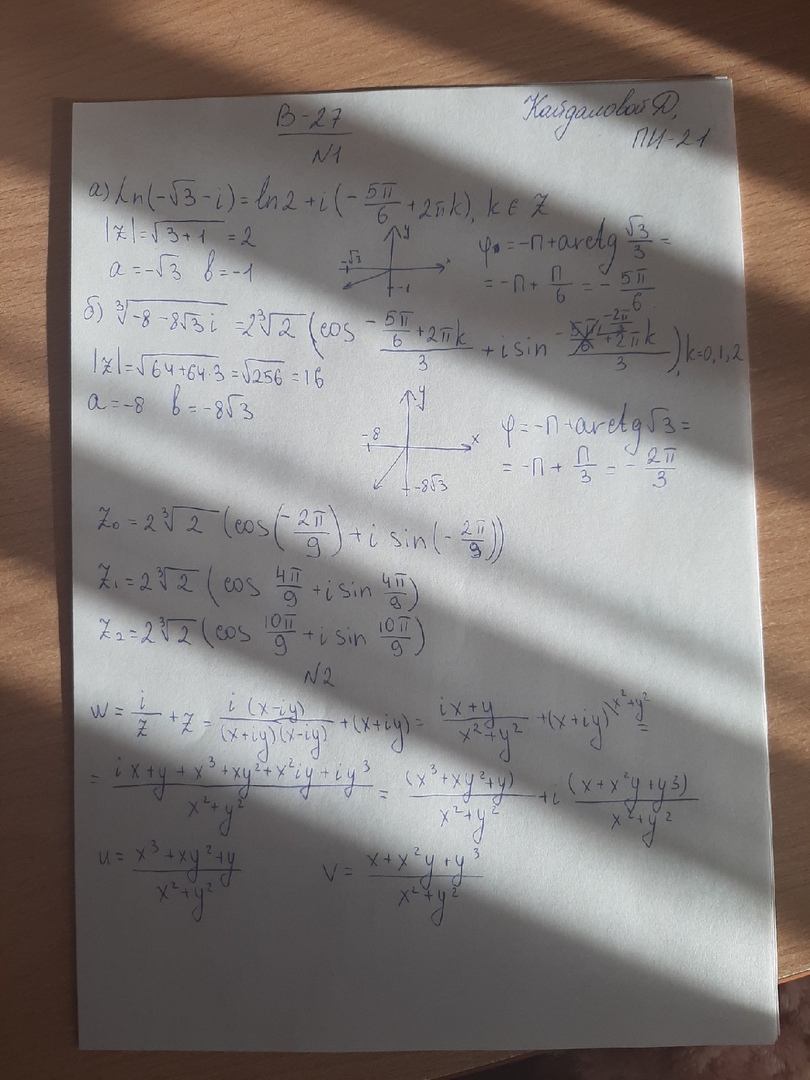 В-27
Кайдаловой Д,
ПИ-21
N1
а) Ln(-√3-i)=ln2+i(-5π/6+2πk), k∈Z
|z|=√(3+1)=2
a=-√3 b=-1
y
-√3
x
-1
φ=-π+arctg √3/3=
=-π+π/6=-5π/6
б) ∛(-8-8√3i)=2∛2(cos (-5π/6+2πk)/3+i sin (-2π/3+2πk)/3), k=0,1,2
|z|=√(64+64·3)=√256=16
a=-8 b=-8√3
y
-8
x
-8√3
φ=-π+arctg√3=
=-π+π/3=-2π/3
Z₀=2∛2(cos(-2π/9)+i sin(-2π/9))
Z₁=2∛2(cos 4π/9+i sin 4π/9)
Z₂=2∛2(cos 10π/9+i sin 10π/9)
N2
w=i/z+z=i(x-iy)/((x+iy)(x-iy))+(x+iy)=(ix+y)/(x²+y²)+(x+iy)\x²+y²=
=(ix+y+x³+xy²+x²iy+iy³)/(x²+y²)=(x³+xy²+y)/(x²+y²)+i(x+x²y+y³)/(x²+y²)
u=(x³+xy²+y)/(x²+y²) v=(x+x²y+y³)/(x²+y²)